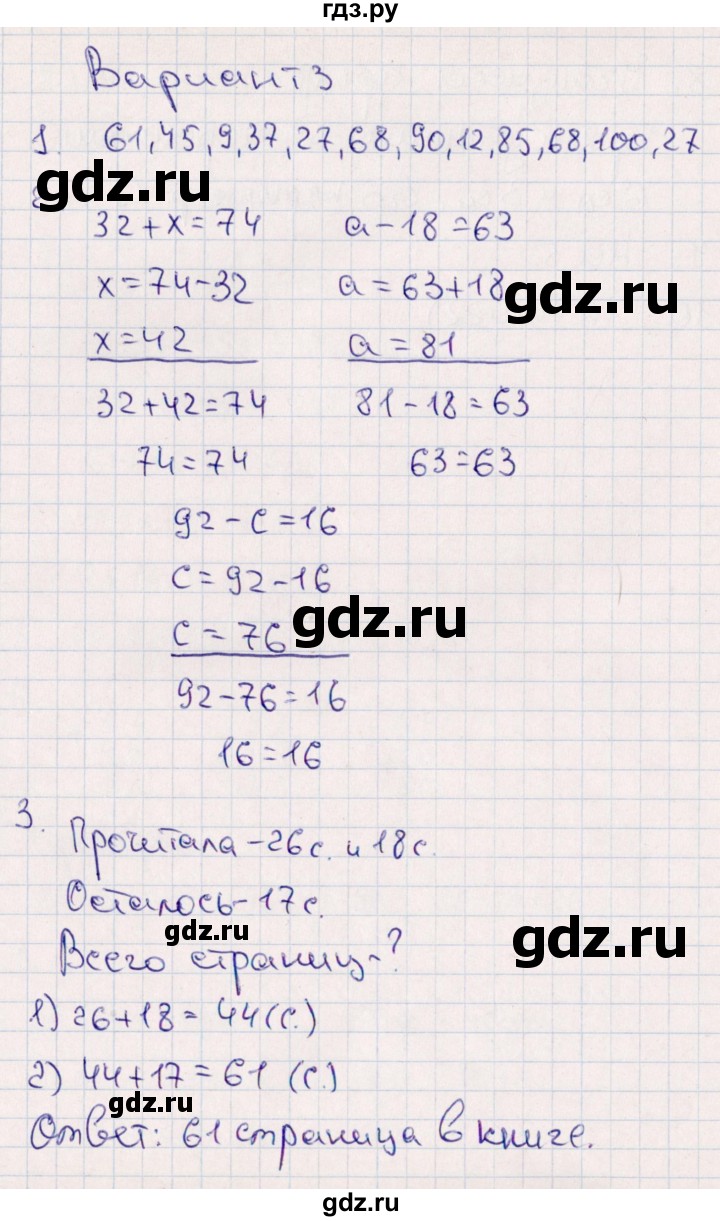 гдз.ру
Вариант 3
1. 61, 45, 9, 37, 27, 68, 90, 12, 85, 68, 100, 27
gdz.ru
32 + x = 74 a - 18 = 63
x = 74 - 32 a = 63 + 18
gdz.ru
x = 42 a = 81
32 + 42 = 74 81 - 18 = 63
74 = 74 63 = 63
92 - c = 16
c = 92 - 16
c = 76
gdz.ru
92 - 76 = 16
16 = 16
3.
Прочитала - 26 с. и 18 с.
Осталось - 17 с.
gdz.ru
Всего страниц - ?
gdz.ru
1) 26 + 18 = 44 (с.)
2) 44 + 17 = 61 (с.)
gdz.ru
Ответ: 61 страница в книге.
gdz.ru